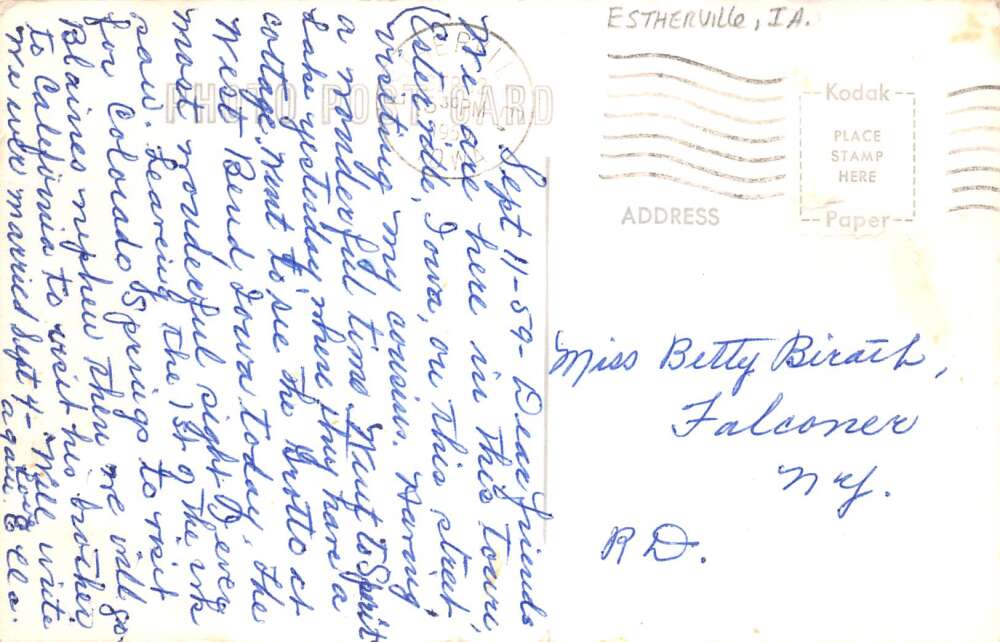 ESTHERVILLE, IA.
PHOTO POST CARD
Kodak
PLACE
STAMP
HERE
Paper
ADDRESS
Sept 11-59- Dear Friends
We are here in this town,
(Esterville, Iowa, on this street,
visiting my cousins. Having
a wonderful time Went to Spirit
Lake yesterday, where they have a
cottage. Went to see the Grotto at
West Bend, Iowa today, the
most wonderful sight I ever
saw. Leaving the 1st of the wk
for Colorado Springs to visit
Blaines nephew then we will go
to California to visit his brother
We were married Sept 4- Will write
again. Love Ella.
Miss Betty Birath,
Falconer
N.Y.
R.D.